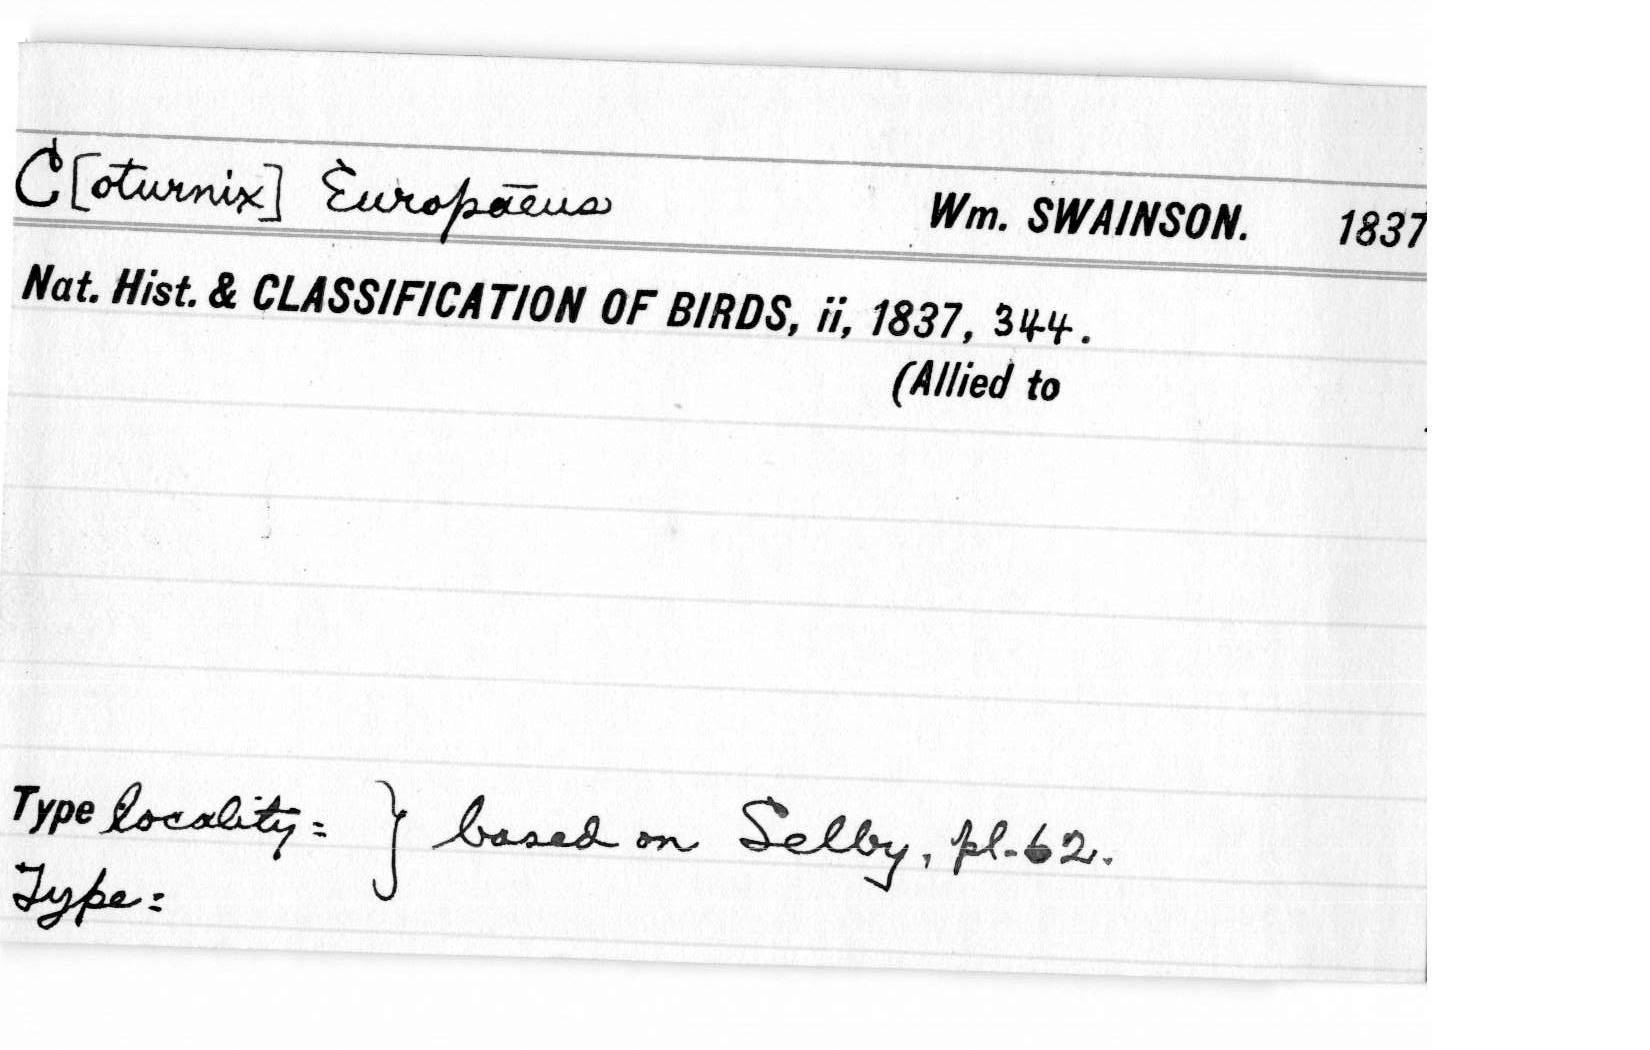 C[oturnix] Europāeus Wm. SWAINSON. 1837
Nat. Hist. & CLASSIFICATION OF BIRDS, ii, 1837, 344.
(Allied to
Type locality: } based on Selby, pl. 62.
Type: